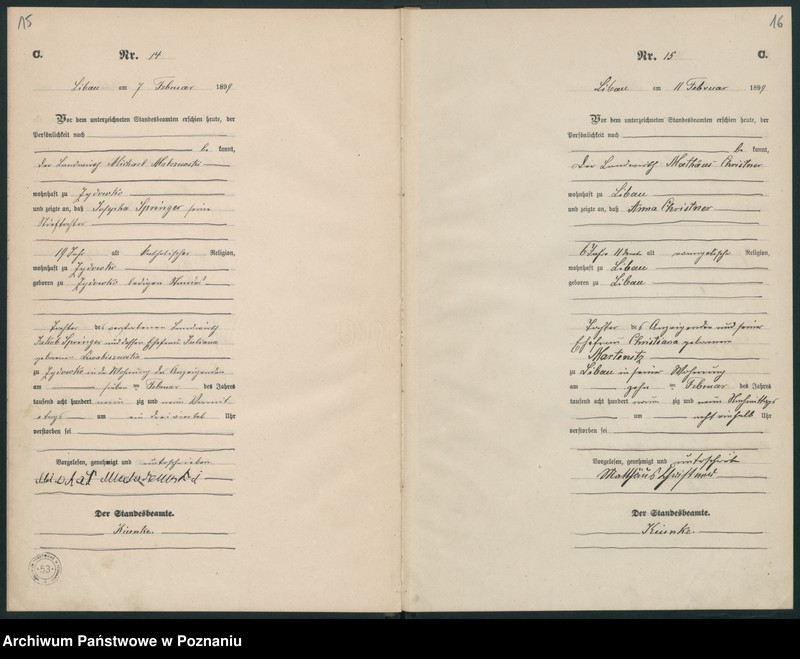 15
C.
Nr. 14
Libau am 7 Februar 1899
Vor dem unterzeichneten Standesbeamten erschien heute, der
Persönlichkeit nach
be kannt,
der Landwirth Michael
wohnhaft zu Zydowko
und zeigte an, daß Josepha Springer seine
Stieftochter
19 Jahr alt katholischer Religion,
wohnhaft zu Zydowko
geboren zu Zydowko ledigen Standes
Tochter des verstorbenen Landwirth
Jakob Springer und dessen Ehefrau Juliana
geborenen
zu Zydowko in der Wohnung des Anzeigenden
am sieben ten Februar des Jahres
tausend acht hundert neun zig und neun Vormit
tags um ein dreiviertel Uhr
verstorben sei
Vorgelesen, genehmigt und unterschrieben
Der Standesbeamte.
Kienke.
53
16
Nr. 15
C.
Libau am 11 Februar 1899
Vor dem unterzeichneten Standesbeamten erschien heute, der
Persönlichkeit nach
be kannt,
Der Landwirth Mathäus Christner
wohnhaft zu Libau
und zeigte an, daß Anna Christner
6 Jahre 11 Monate alt evangelische Religion,
wohnhaft zu Libau
geboren zu Libau
Tochter des Anzeigenden und seiner
Ehefrau Christiana geborenen
Martenitz
zu Libau in seiner Wohnung
am zehn ten Februar des Jahres
tausend acht hundert neun zig und neun Nachmittags
um acht einhalb Uhr
verstorben sei
Vorgelesen, genehmigt und unterschrieb
Matthäus Christner
Der Standesbeamte.
Kienke.
Archiwum Państwowe w Poznaniu